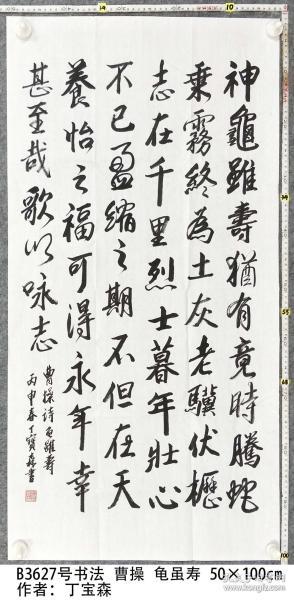 神龜雖壽猶有竟時騰蛇
乗霧終為土灰老驥伏櫪
志在千里烈士暮年壯心
不已盈縮之期不但在天
養怡之福可得永年幸
甚至哉歌以咏志
曹操詩龜雖壽
丙申春丁寶森書
B3627号书法 曹操 龟虽寿 50×100cm
作者：丁宝森